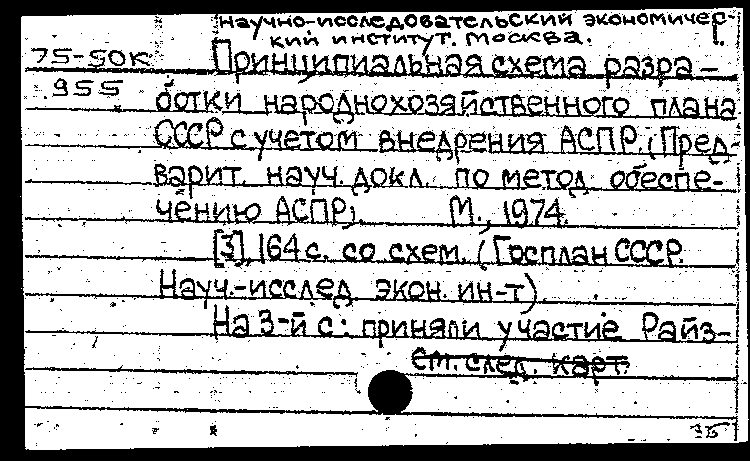 научно-исследовательский экономичес-
кий институт. Москва.
75-50к
955
Принципиальная схема разра-
ботки народнохозяйственного плана
СССР с учетом внедрения АСПР. (Пред-
варит. науч. докл. по метод обеспе-
чению АСПР). М., 1974.
[3], 164 с. со схем. (Госплан СССР.
Науч.-исслед экон. ин-т).
На 3-й с: приняли участие Райз-
см. след. карт.